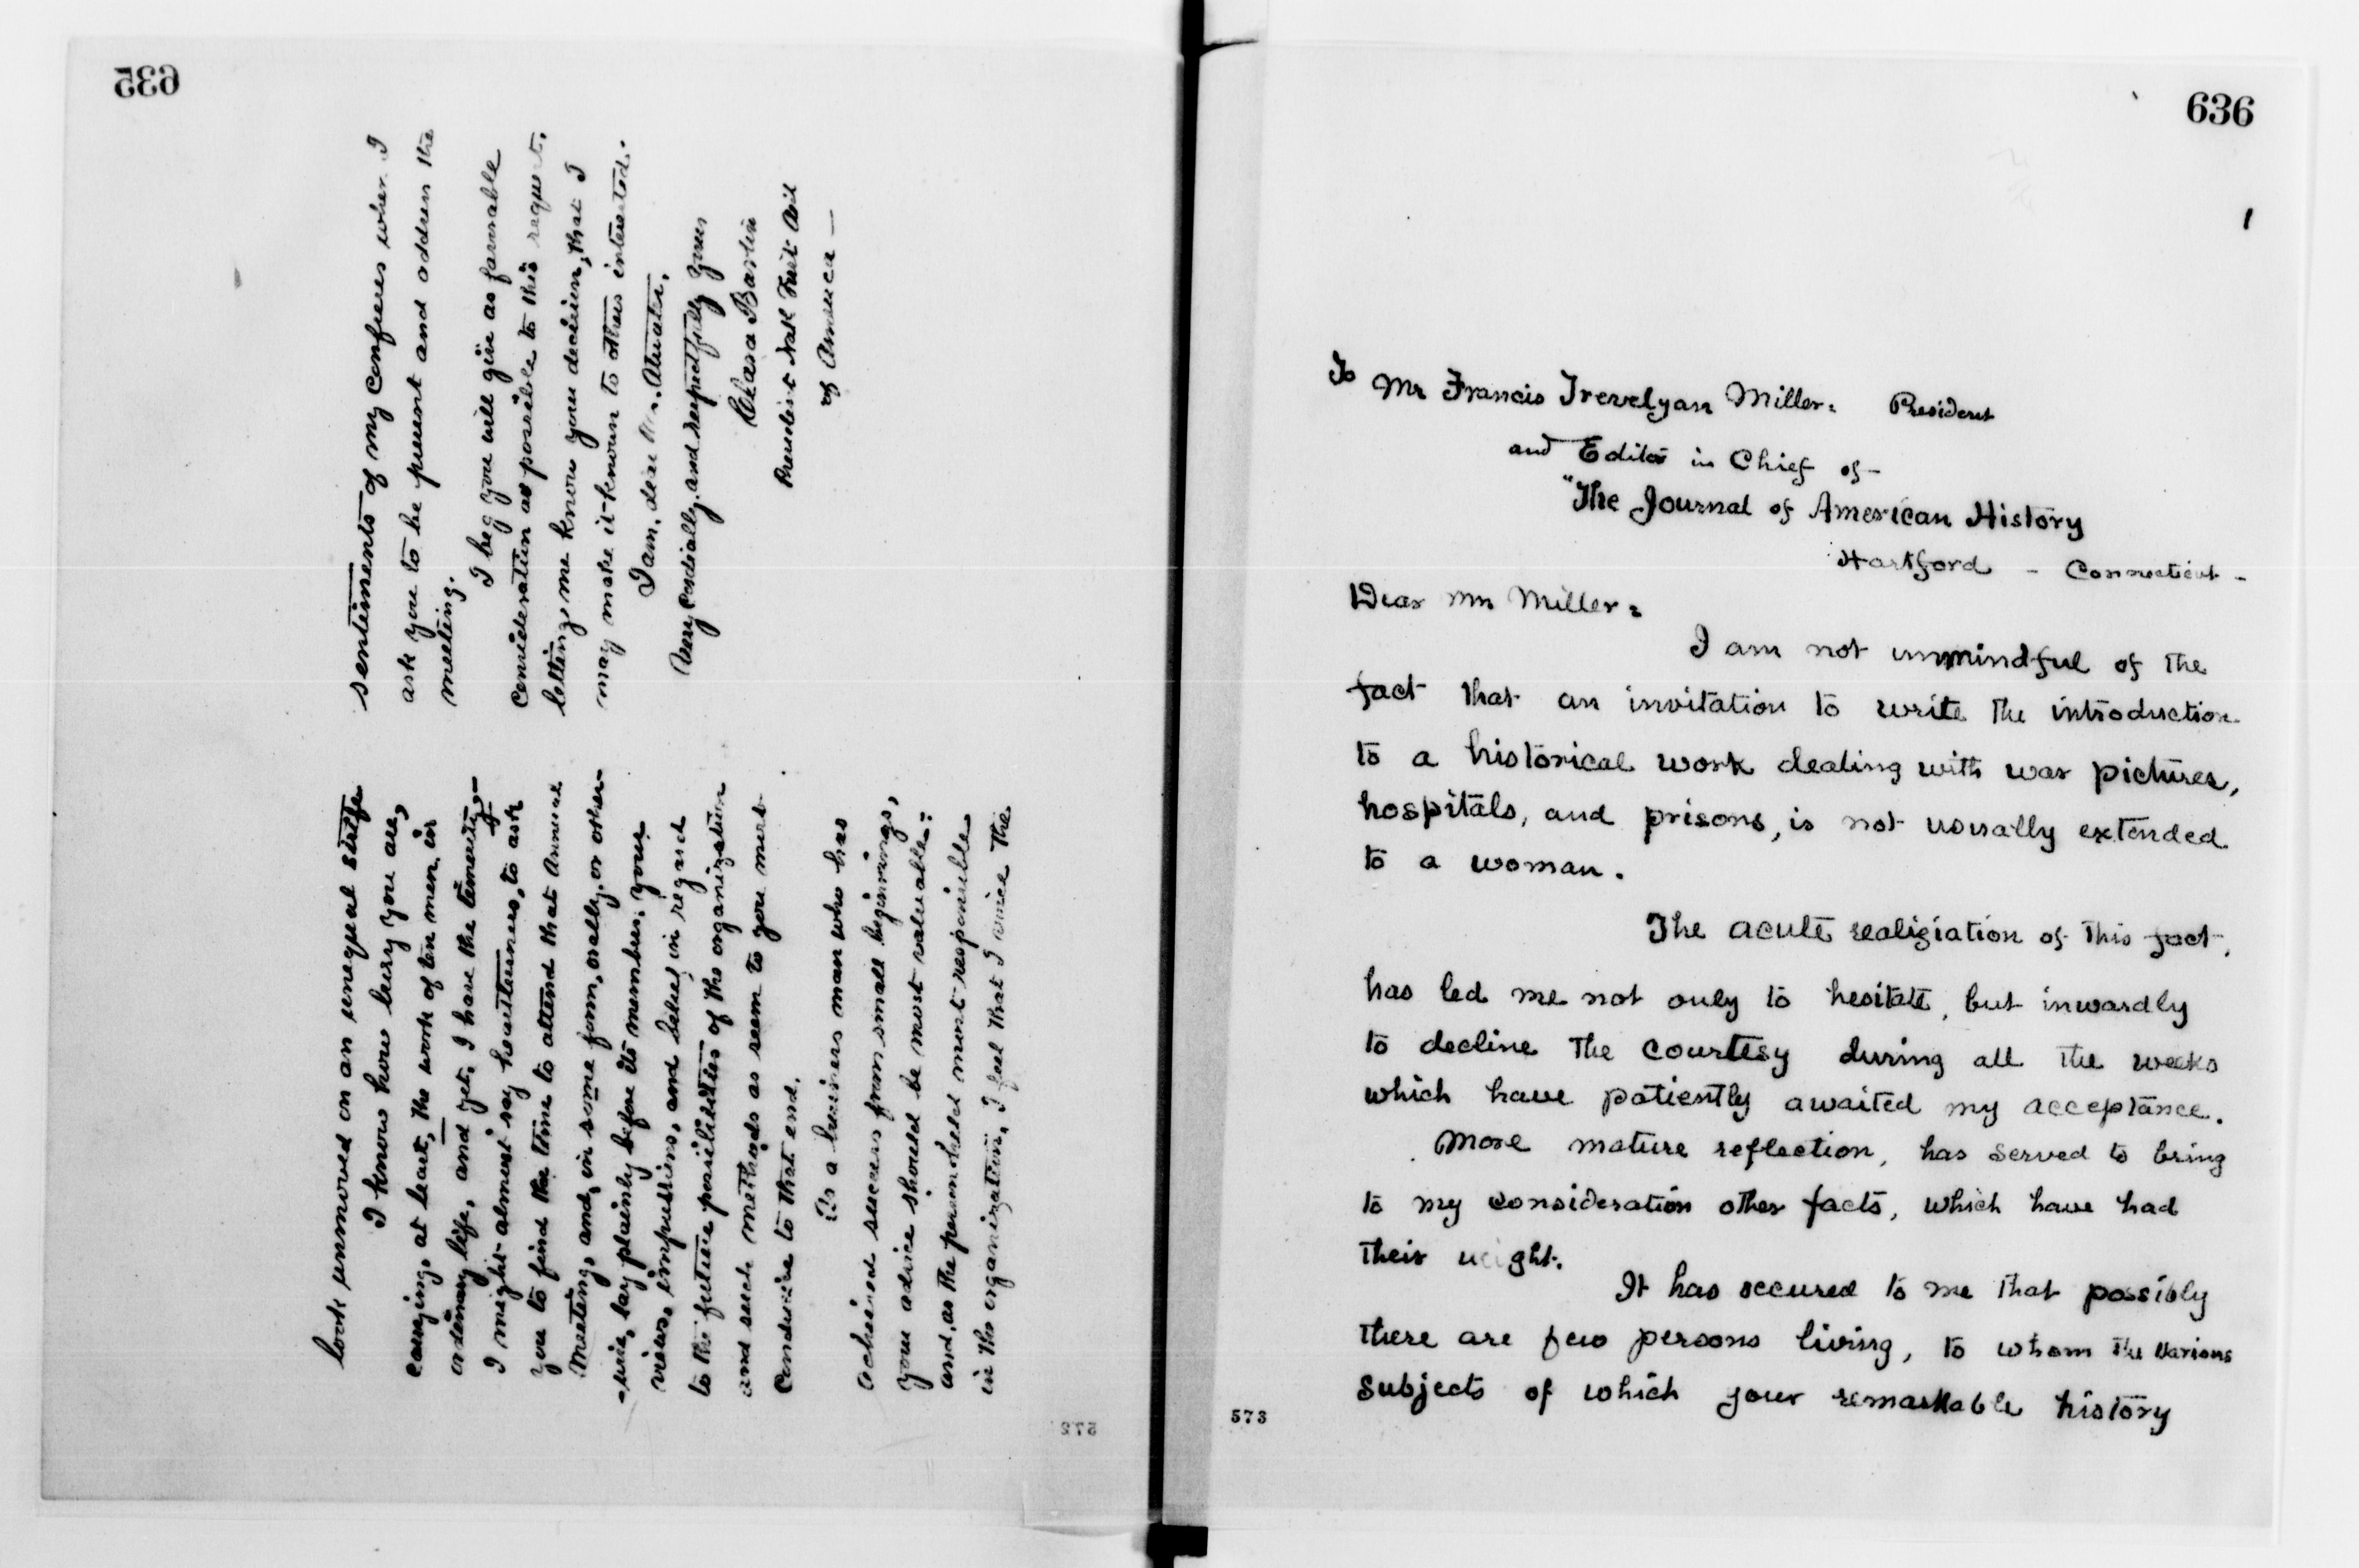 635
look unmoved on an unequal strife
I know how busy you are,
carrying, at least, the work of ten men, in
ordinary life, and yet, I have the temerity,-
I might almost say heartlessness, to ask
you to find the time to attend that Annual
Meeting, and, in some form, orally, or other-
-wise, lay plainly before its members, your
views, impressions, and belief in regard
to the future possibilities of the organization
and such methods as seem to you most
conducive to that end.
As a business man who has
achieved success from small beginnings,
your advice should be most valuable:
and, as the person held most responsible
in the organization, I feel that I voice the
sentiments of my confreres when I
ask you to be present and address the
meeting.
I beg you will give as favorable
consideration as possible to this request,
letting me know your decision, that I
may make it known to others interested.
I am, dear Mr.
Very cordially, and respectfully yours
Clara Barton
President Natl First Aid
of America —
572
636
1
To
Mr Francis Trevelyan Miller: President
and Editor in Chief of-
"The Journal of American History
Hartford - Connecticut -
Dear Mr Miller:
I am not unmindful of the
fact that an invitation to write the introduction
to a historical work dealing with war pictures,
hospitals, and prisons, is not usually extended
to a woman.
The acute realigiation of this fact,
has led me not only to hesitate, but inwardly
to decline the courtesy during all the weeks
which have patiently awaited my acceptance.
More mature reflection, has served to bring
to my consideration other facts, which have had
their weight.
It has occured to me that possibly
there are few persons living, to whom the various
subjects of which your remarkable history
573